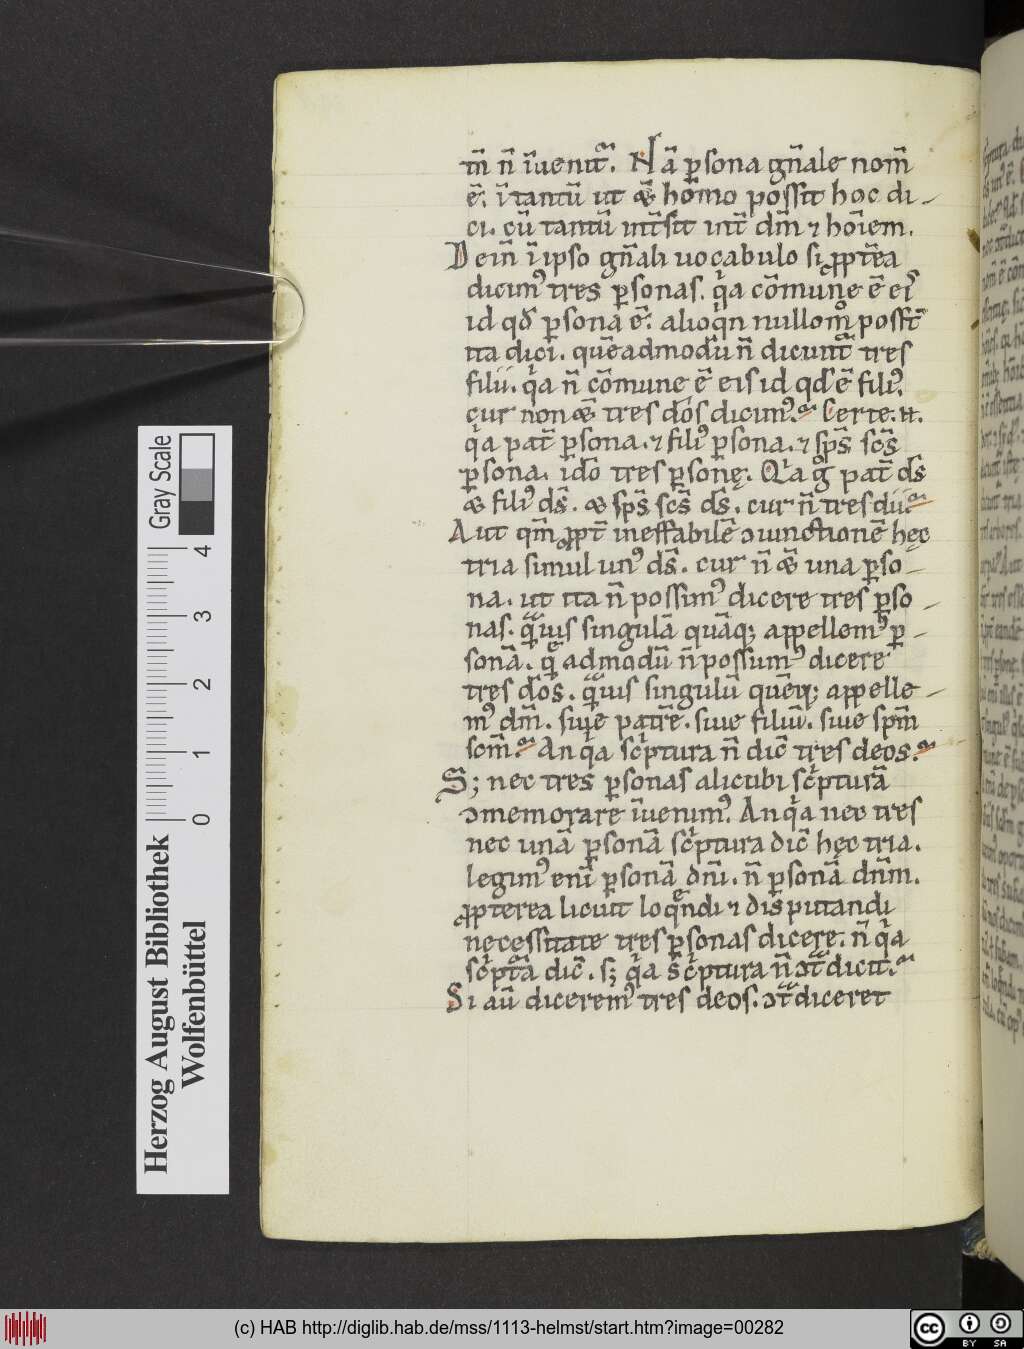 tm̄ n̄ īuenit᷑. Nā ꝑsona gn̄ale nom̄
ē. ī tantū ut & hōmo possit hoc di-
ci. cū tantū int̄sit int̄ dm̄ ⁊ hōiem.
Dein̄ ī ipso gn̄ali uocabulo si ꝓpt̄ea
dicimꝰ tres ꝑsonas. qͥa cōmune ē eiꝰ
id qđ ꝑsona ē. alioqͥn nullomͦ posst̄
ita dici. quēadmodū n̄ dicunt᷑ tres
filii. qͥa n̄ cōmune ē eis id qđ ē filiꝰ.
cur non & tres dōs dicimꝰ? Certe.
qͥa pat̄ ꝑsona. ⁊ filiꝰ ꝑsona. ⁊ sp̄s sc̄s
ꝑsona. idō tres ꝑsonę. Qͥa gͦ pat̄ ds̄
& filiꝰ ds̄. & sp̄s sc̄s ds̄. cur n̄ tres dii?
Aut qm̄ ꝓpt̄ ineffabilē ↄiunctionē hęc
tria simul unꝰ ds̄. cur n̄ & una ꝑso-
na. ut ita n̄ possimꝰ dicere tres ꝑso-
nas. qᷓuis singulā quāq; appellemꝰ ꝑ-
sonā. qͤadmodū n̄ possumꝰ dicere
tres dōs. qᷓuis singulū quēq; appelle-
mꝰ dm̄. siue patrē. siue filiū. siue sp̄m
scm̄? An qͥa sc̄ptura n̄ dic̄ tres deos?
S; nec tres ꝑsonas alicubi sc̄pturā
ↄmemorare īuenimꝰ. An qͥa nec tres
nec unā ꝑsonā sc̄ptura dic̄ hęc tria.
legimꝰ enī ꝑsonā dn̄i. n̄ ꝑsonā dn̄m.
ꝓpterea licuit loqͤndi ⁊ disputandi
necessitate tres ꝑsonas dicere. n̄ qͥa
sc̄ptᷓa dic̄. s; qͥa sc̄ptura n̄ ↄtᷓdicit?
Si aū diceremꝰ tres deos. ↄtᷓdiceret
Gray Scale
0 1 2 3 4
Herzog August Bibliothek
Wolfenbüttel
(c) HAB http://diglib.hab.de/mss/1113-helmst/start.htm?image=00282
cc BY SA